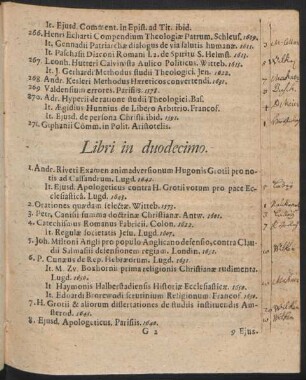 It. Ejusd. Comment. in Epist. ad Tit. ibid.
266. Henri Eckarti Compendium Theologiæ Patrum. Schleus. 1639.
It. Gennadi Patriarchæ dialogus de via salutis humanæ. 1611.
It. Paschasii Diaconi Romani l. 2. de Spiritu S. Helmst. 1613.
267. Leonh. Hutteri Calvinista Aulico Politicus. Witteb. 1615.
It. J. Gerhardi Methodus studii Theologici. Jen. 1622.
268. Andr. Kesleri Methodus Hæreticos convertendi. 1631.
269. Valdensium errores. Parisiis. 1578.
270. Adr. Hyperii de ratione studii Theologici. Bas.
It. Ægidius Hunnius de Libero Arbitrio. Francof.
It. Ejusd. de persona Christi. ibid. 1590.
271. Giphanii Comm. in Polit. Aristotelis.
Libri in duodecimo.
1. Andr. Riveti Examen animadversionum Hugonis Grotii pro notis ad Cassandrum. Lugd. 1642.
It. Ejusd. Apologeticus contra H. Grotii votum pro pace Ecclesiastica. Lugd. 1643.
2. Orationes quædam selectæ. Witteb. 1573.
3. Petr. Canisii summa doctrinæ Christianæ. Antw. 1561.
4. Catechismus Romanus Fabricii. Colon. 1622.
It. Regulæ Societatis Jesu. Lugd. 1607.
5. Joh. Miltoni Angli pro populo Anglicano defensio, contra Claudii Salmasii defensionem regiam. Londin. 1651.
6. P. Cunæus de Rep. Hebræorum. Lugd. 1632.
It. M. Zv. Boxhornii prima religionis Christianæ rudimenta. Lugd. 1650.
It. Haymonis Halberstadiensis Historiæ Ecclesiasticæ. 1650.
It. Edoardi Brerewodi scrutinium Religionum Francof. 1650.
7. H. Grotii & aliorum dissertationes de studiis instituendis Amsterod. 1645.
8. Ejusd. Apologeticus. Parisiis. 1640.
G 2
9 Ejus.